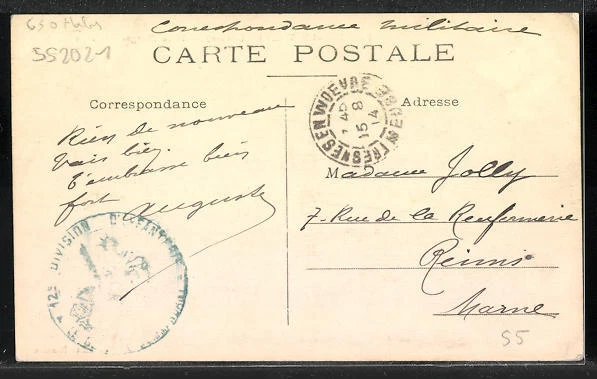 Correspondance militaire
552021
CARTE POSTALE
Correspondance
Adresse
Rien de nouveau
Vais bien.
T'embrasse bien
fort
Auguste
FRESNES EN WOEVRE MEUSE
15 8
14
Madame Jolly
7. Rue de la Renfermerie
Reims
Marne
12E DIVISION D'INFANTERIE
55